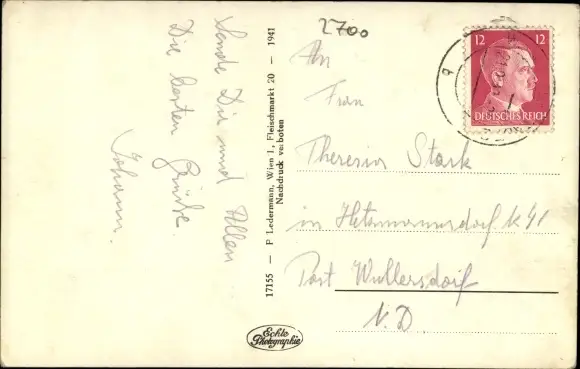 2700
Sende Dir und Allen
Die besten Grüße
Johann.
17155 — P. Ledermann, Wien 1, Fleischmarkt 20 — 1941
Nachdruck verboten
Echte
Photographie
12 12
DEUTSCHES REICH
An
Frau
Theresia Stark
in 41
Post Wullersdorf
N. D.